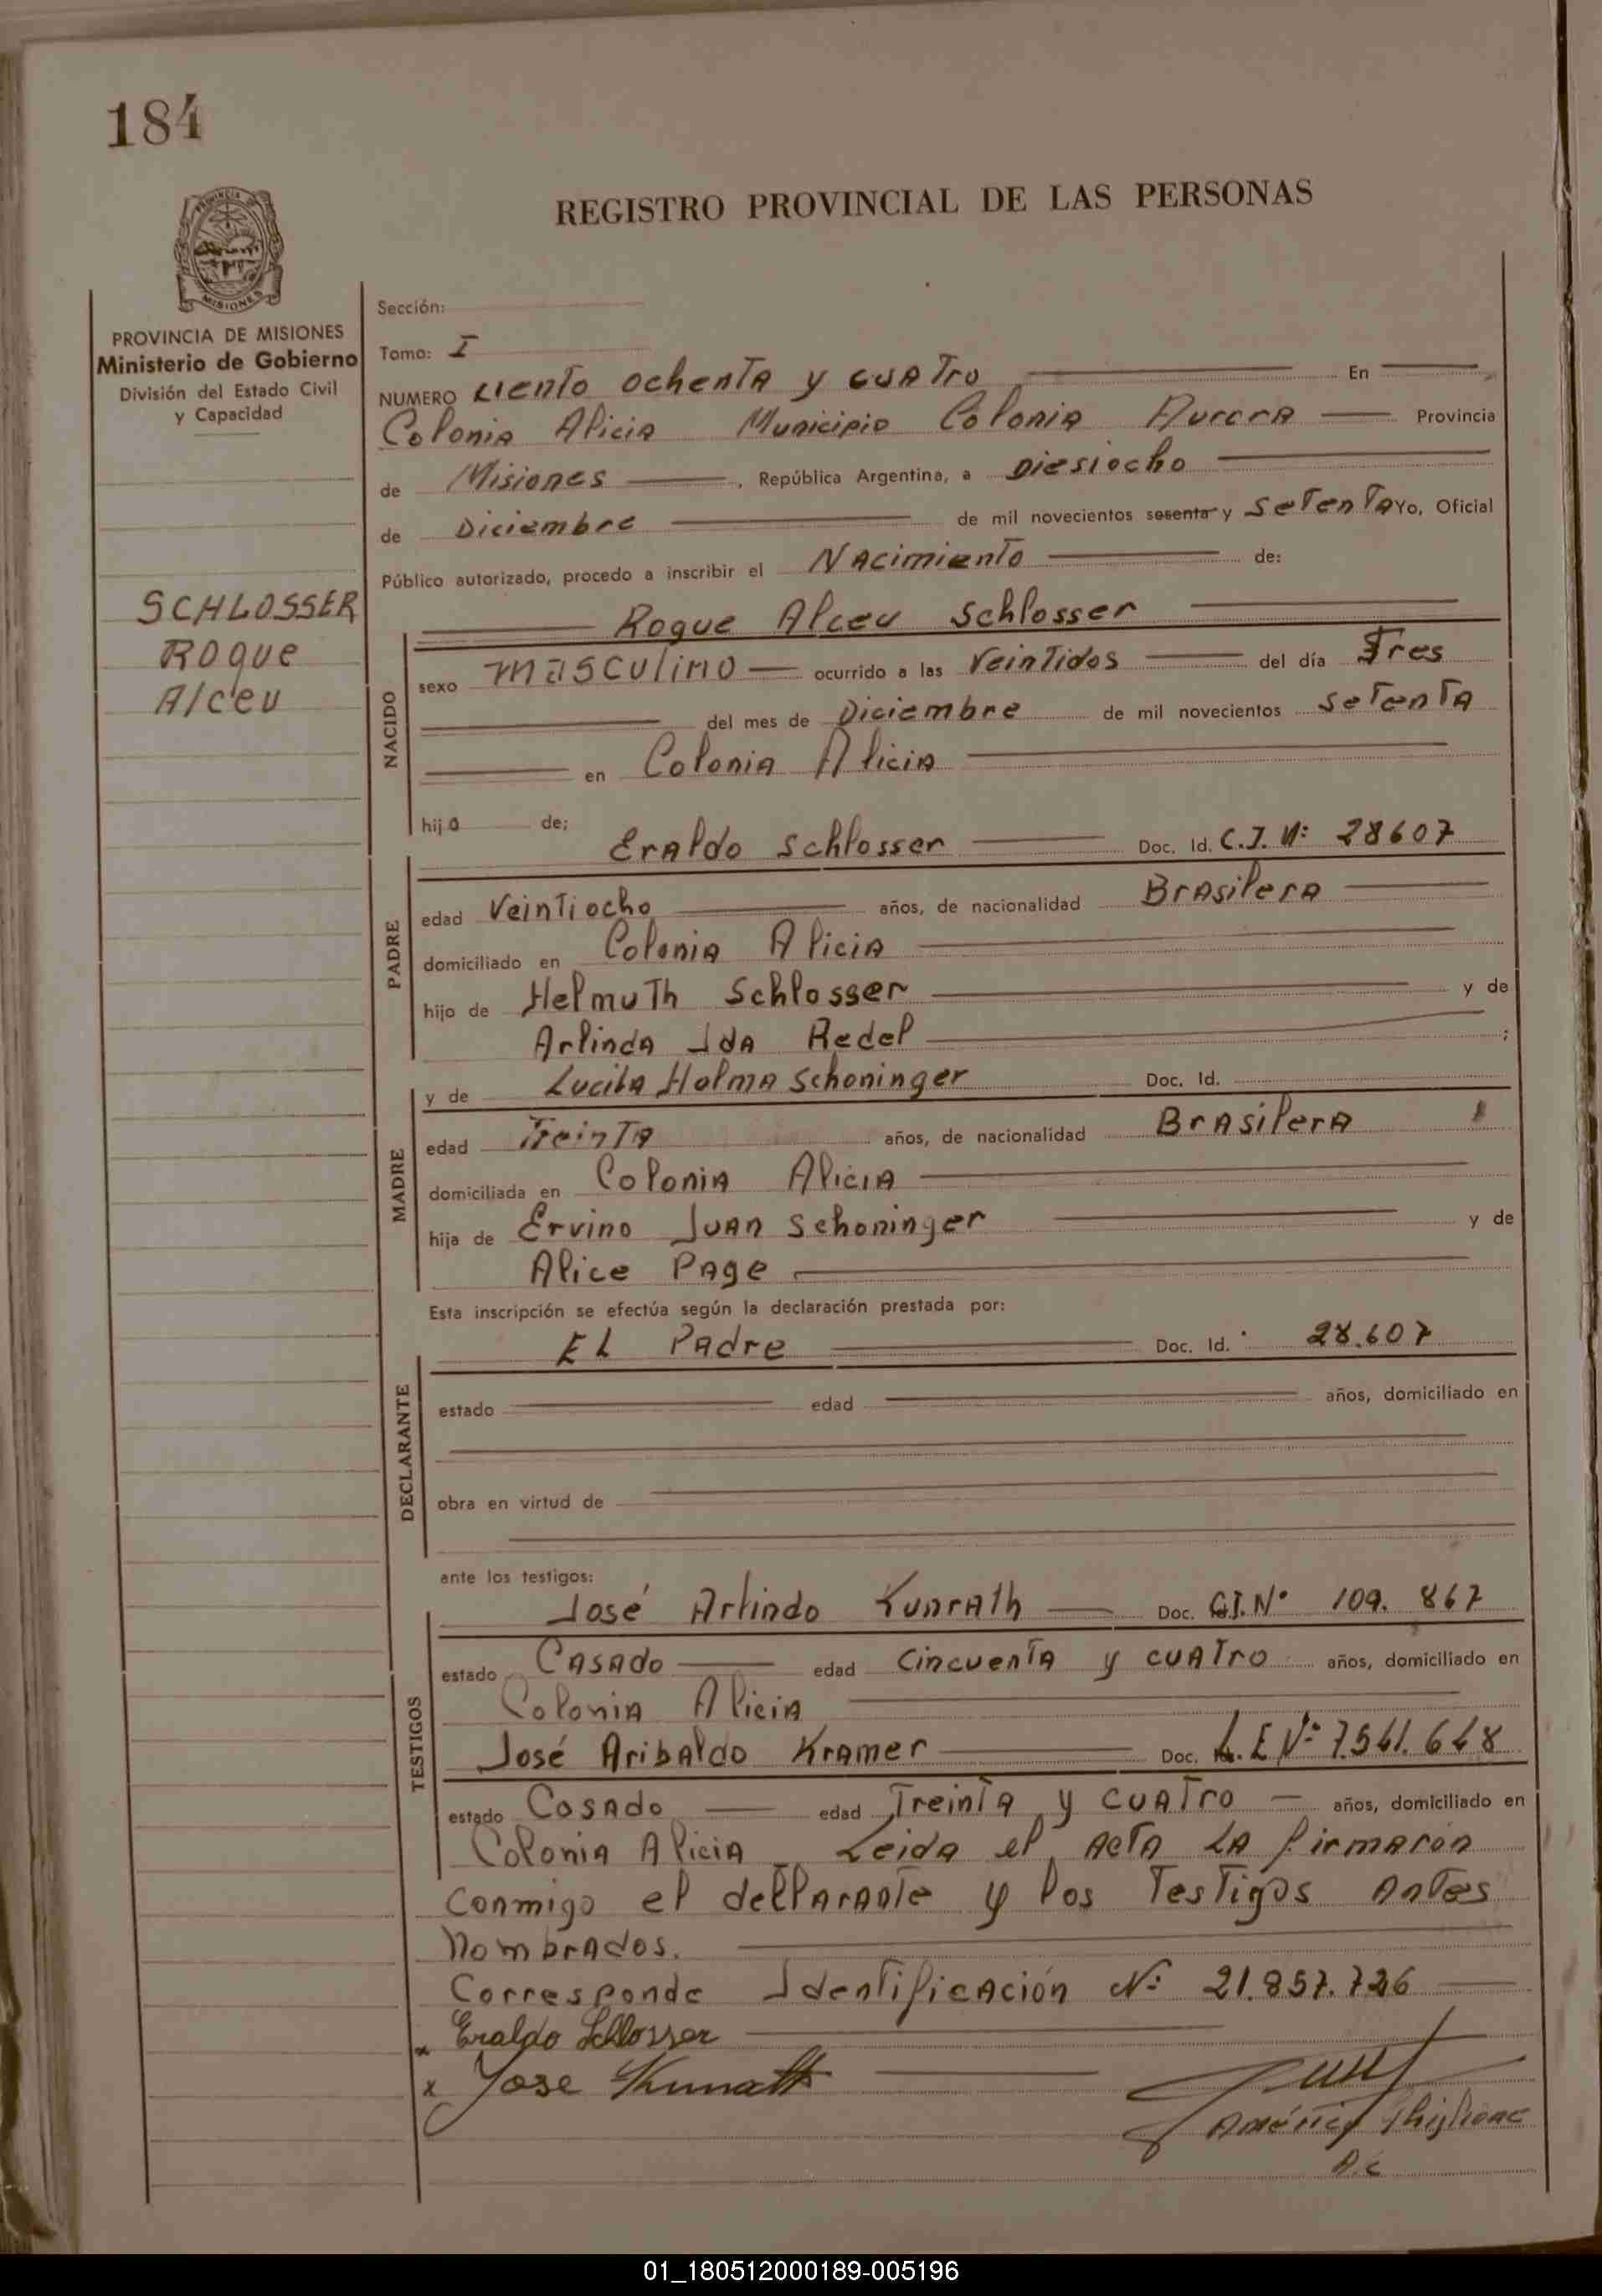 184
REGISTRO PROVINCIAL DE LAS PERSONAS
MISIONES
PROVINCIA DE MISIONES
Ministerio de Gobierno
División del Estado Civil
y Capacidad
SCHLOSSER
ROque
Alceu
Sección:
Tomo: I
NUMERO ciento ochenta y cuatro En
Colonia Alicia Municipio Colonia Aurora Provincia
de Misiones, República Argentina, a Diesiocho
de Diciembre de mil novecientos sesenta y Setenta Yo, Oficial
Público autorizado, procedo a inscribir el Nacimiento de:
Roque Alceu Schlosser
NACIDO
sexo masculino ocurrido a las Veintidos del día Tres
del mes de Diciembre de mil novecientos Setenta
en Colonia Alicia
hijo de;
Eraldo Schlosser Doc. Id. C.I. Nº 28607
PADRE
edad Veintiocho años, de nacionalidad Brasilera
domiciliado en Colonia Alicia
hijo de Helmuth Schlosser y de
Arlinda Ida Redel ;
y de Lucila Holma Schoninger Doc. Id.
MADRE
edad Treinta años, de nacionalidad Brasilera
domiciliada en Colonia Alicia
hija de Ervino Juan Schoninger y de
Alice Page
Esta inscripción se efectúa según la declaración prestada por:
El Padre Doc. Id. 28.607
DECLARANTE
estado edad años, domiciliado en
obra en virtud de
ante los testigos:
José Arlindo Kunrath Doc. C.I. Nº 109. 867
TESTIGOS
estado Casado edad Cincuenta y cuatro años, domiciliado en
Colonia Alicia
José Aribaldo Kramer Doc. L.E Nº 7.541.648
estado Casado edad Treinta y cuatro años, domiciliado en
Colonia Alicia Leida el acta la firmaron
conmigo el declarante y los Testigos antes
Nombrados.
Corresponde Identificación Nº 21.857.726
x Eraldo Schlosser
x Jose Kunrath
01_180512000189-005196